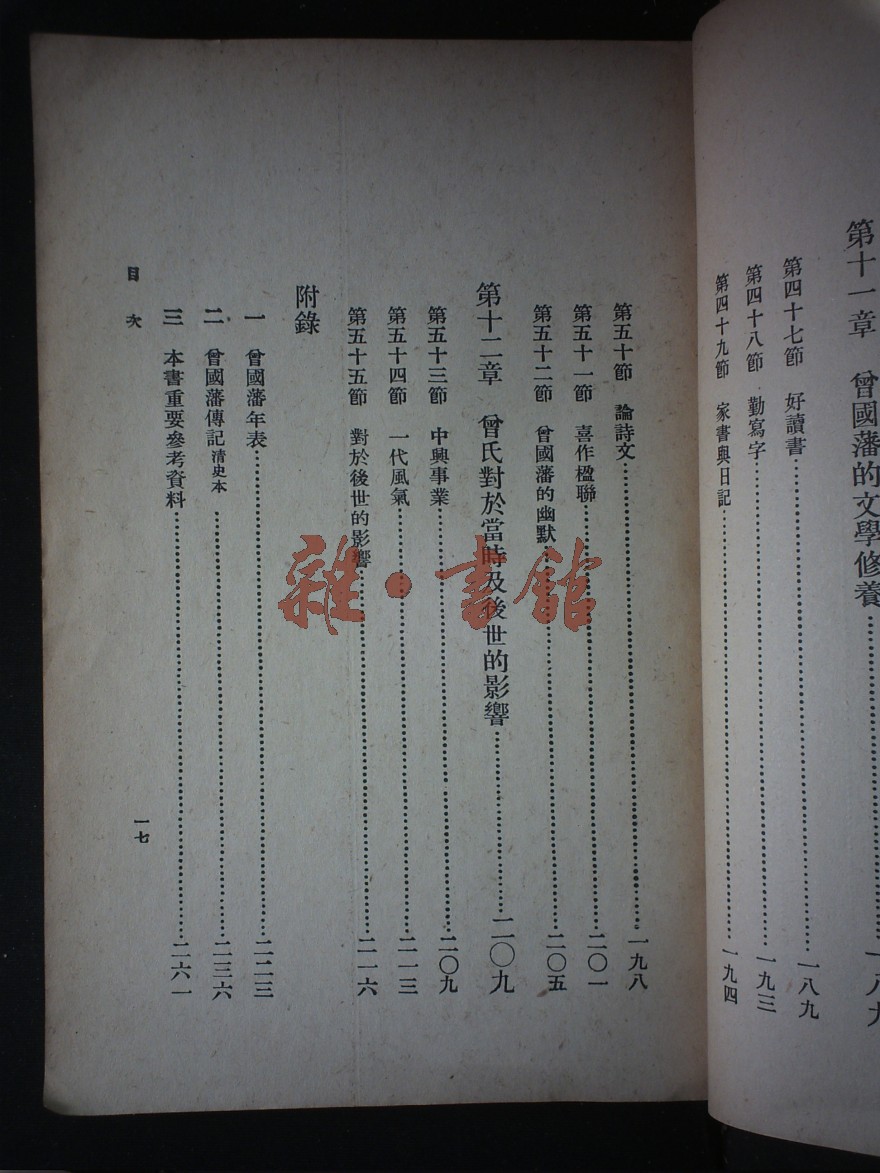 第十一章　曾國藩的文學修養……一八九
第四十七節　好讀書……一八九
第四十八節　勤寫字……一九三
第四十九節　家書與日記……一九四
第五十節　論詩文……一九八
第五十一節　喜作楹聯……二〇一
第五十二節　曾國藩的幽默……二〇五
第十二章　曾氏對於當時及後世的影響……二〇九
第五十三節　中興事業……二〇九
第五十四節　一代風氣……二一三
第五十五節　對於後世的影響……二一六
附錄
一　曾國藩年表……二二三
二　曾國藩傳記清史本……二三六
三　本書重要參考資料……二六一
目次
一七
雜·書館